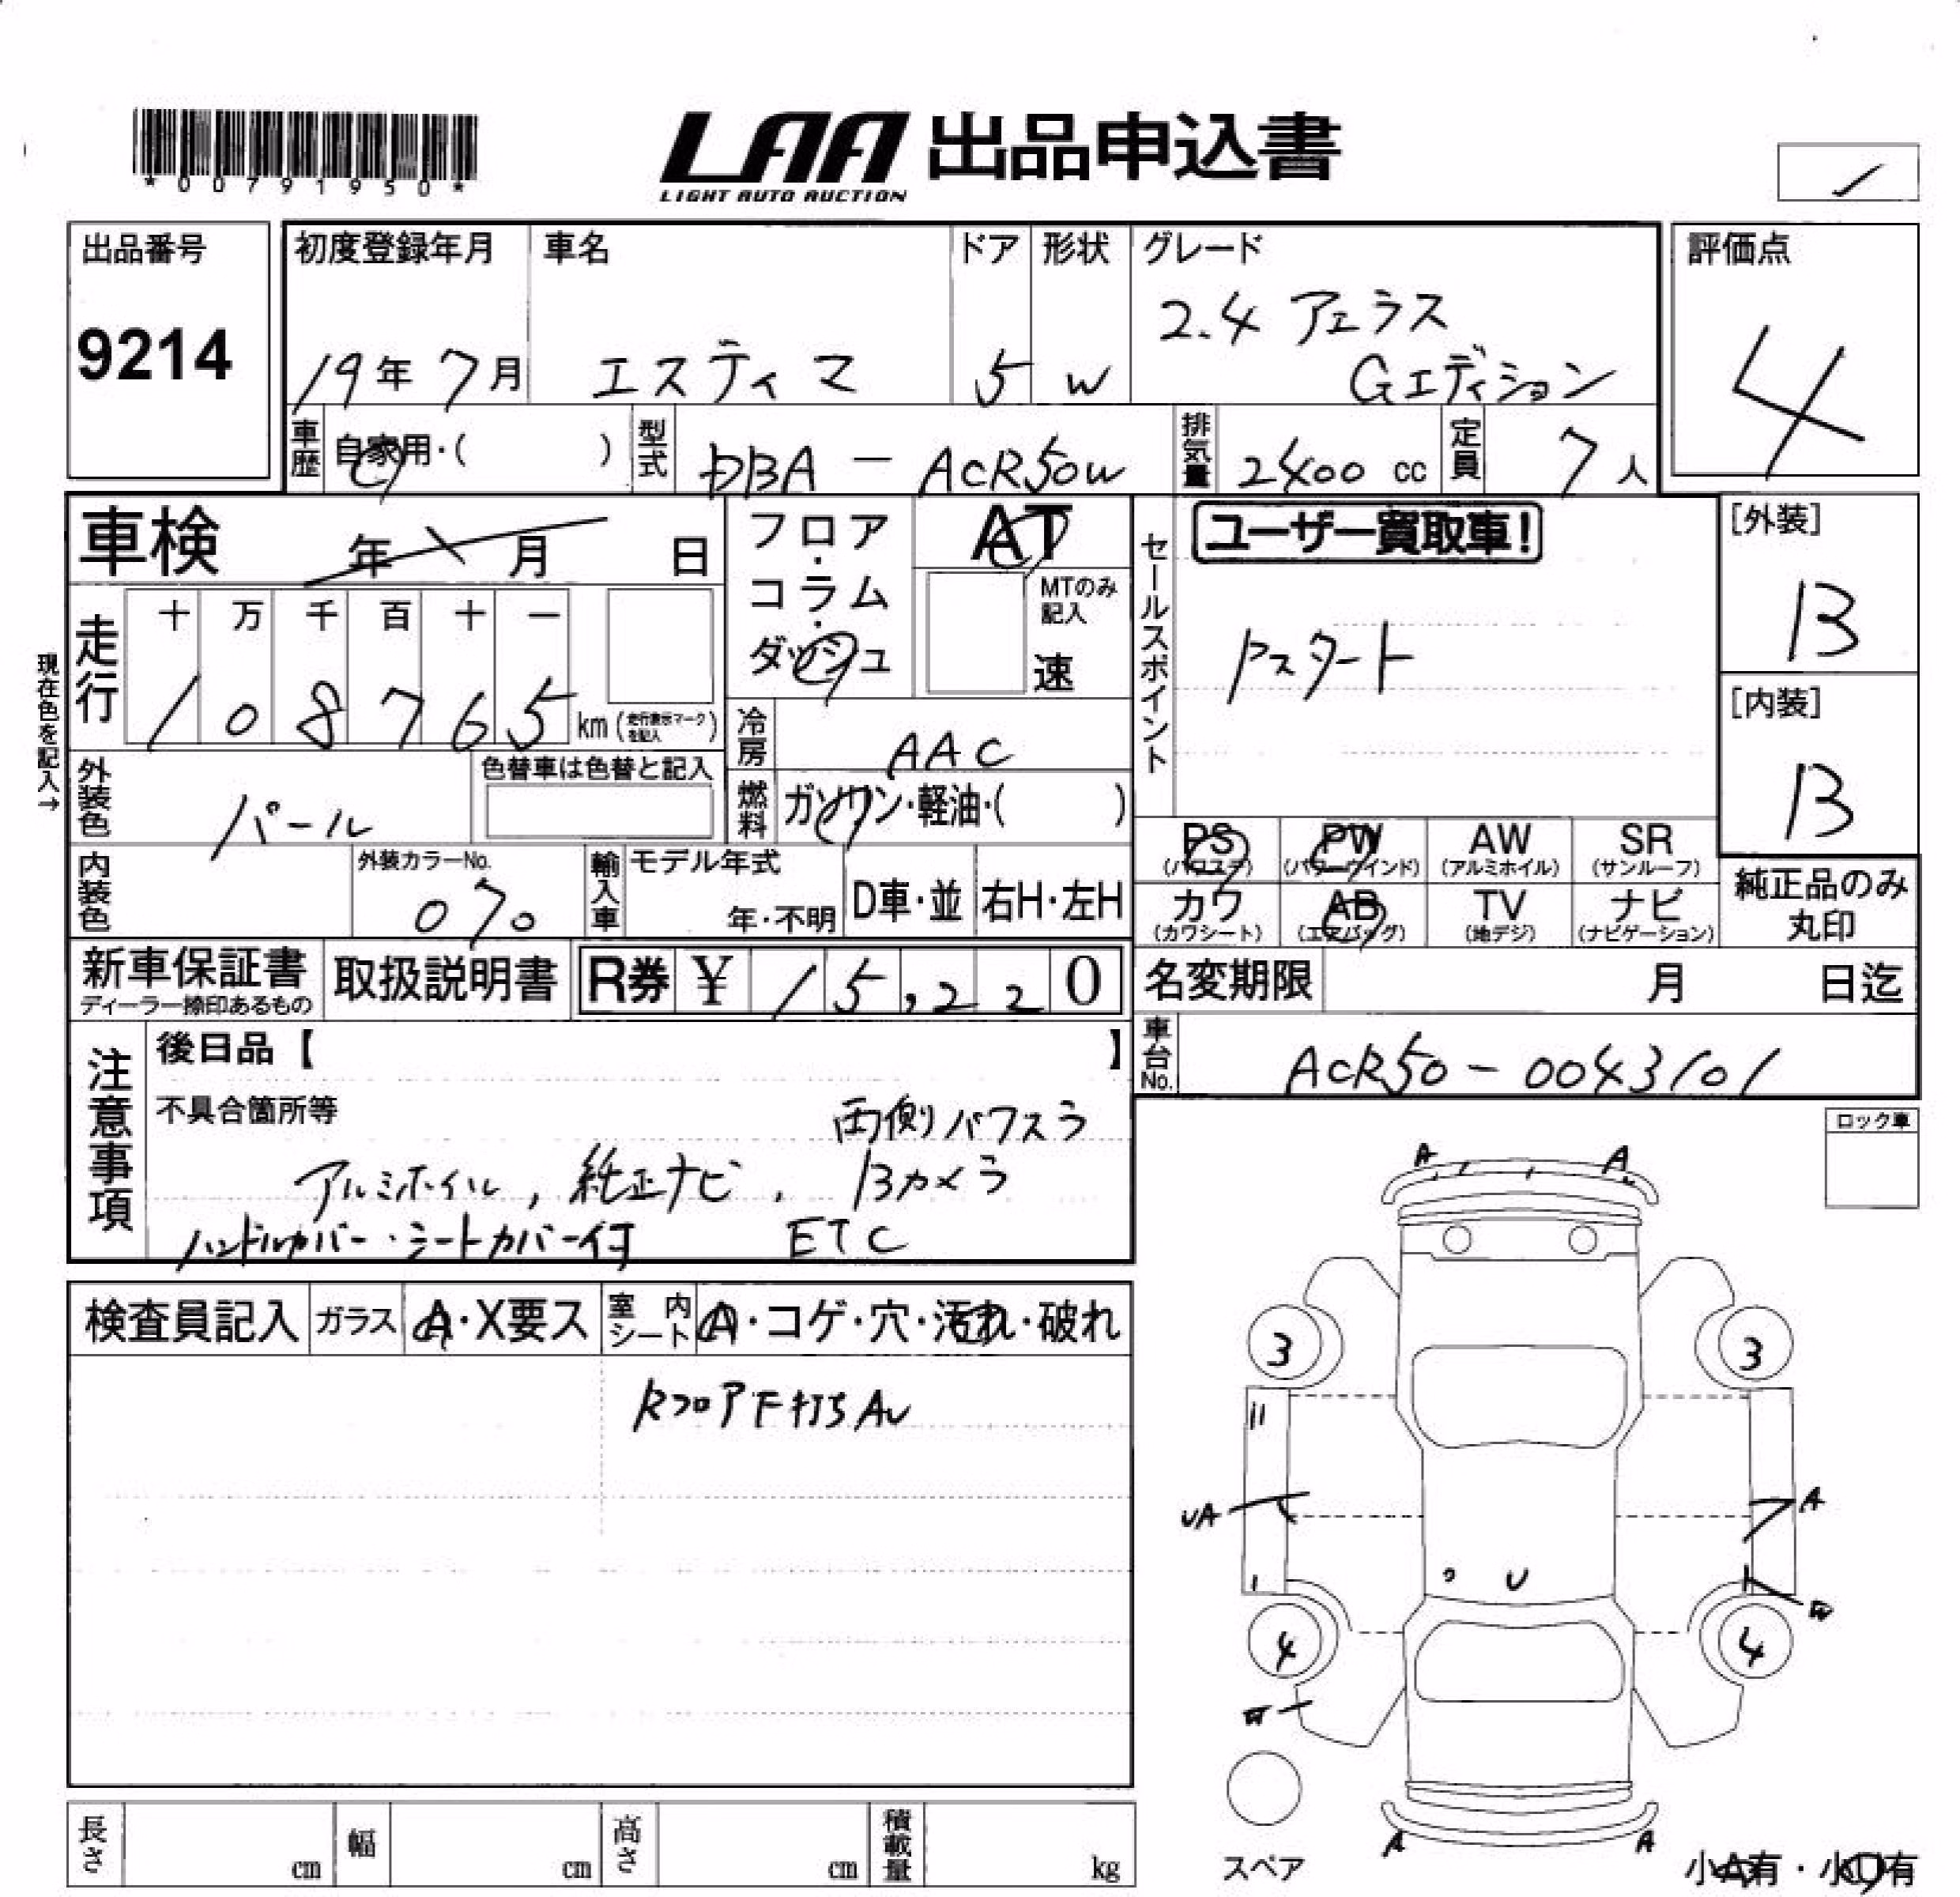 *00791950*
LAA 出品申込書
LIGHT AUTO AUCTION
出品番号
9214
初度登録年月
19年 7月
車名
エスティマ
ドア
5
形状
W
グレード
2.4 アエラス
Gエディション
評価点
4
車歴
自家用・( )
型式
DBA - ACR50W
排気量
2400 cc
定員
7人
車検
年 月 日
フロア・コラム・ダッシュ
AT
MTのみ記入
速
セールスポイント
ユーザー買取車!
Pスタート
[外装]
B
[内装]
B
現在色を記入→
走行
十 万 千 百 十 一
1 0 8 7 6 5 km (走行表示マークを記入)
冷房
AAC
外装色
パール
色替車は色替と記入
燃料
ガソリン・軽油・( )
PS
(パワステ)
PW
(パワーウインド)
AW
(アルミホイル)
SR
(サンルーフ)
カワ
(カワシート)
AB
(エアバッグ)
TV
(地デジ)
ナビ
(ナビゲーション)
純正品のみ
丸印
内装色
外装カラーNo.
070
輸入車
モデル年式
年・不明
D車・並
右H・左H
新車保証書
ディーラー捺印あるもの
取扱説明書
R券 ¥ 15,220
名変期限
月 日迄
車台No.
ACR50-0043101
注意事項
後日品【 】
不具合箇所等
両側パワスラ
アルミホイル, 純正ナビ, Bカメラ
ハンドルカバー・シートカバー付 ETC
ロック車
検査員記入
ガラス
A・X要ス
室内シート
A・コゲ・穴・汚れ・破れ
RフロアF打ちAU
A A
3 3
UA A
U
4 4
A A
スペア
小A有・小U有
長さ cm
幅 cm
高さ cm
積載量 kg